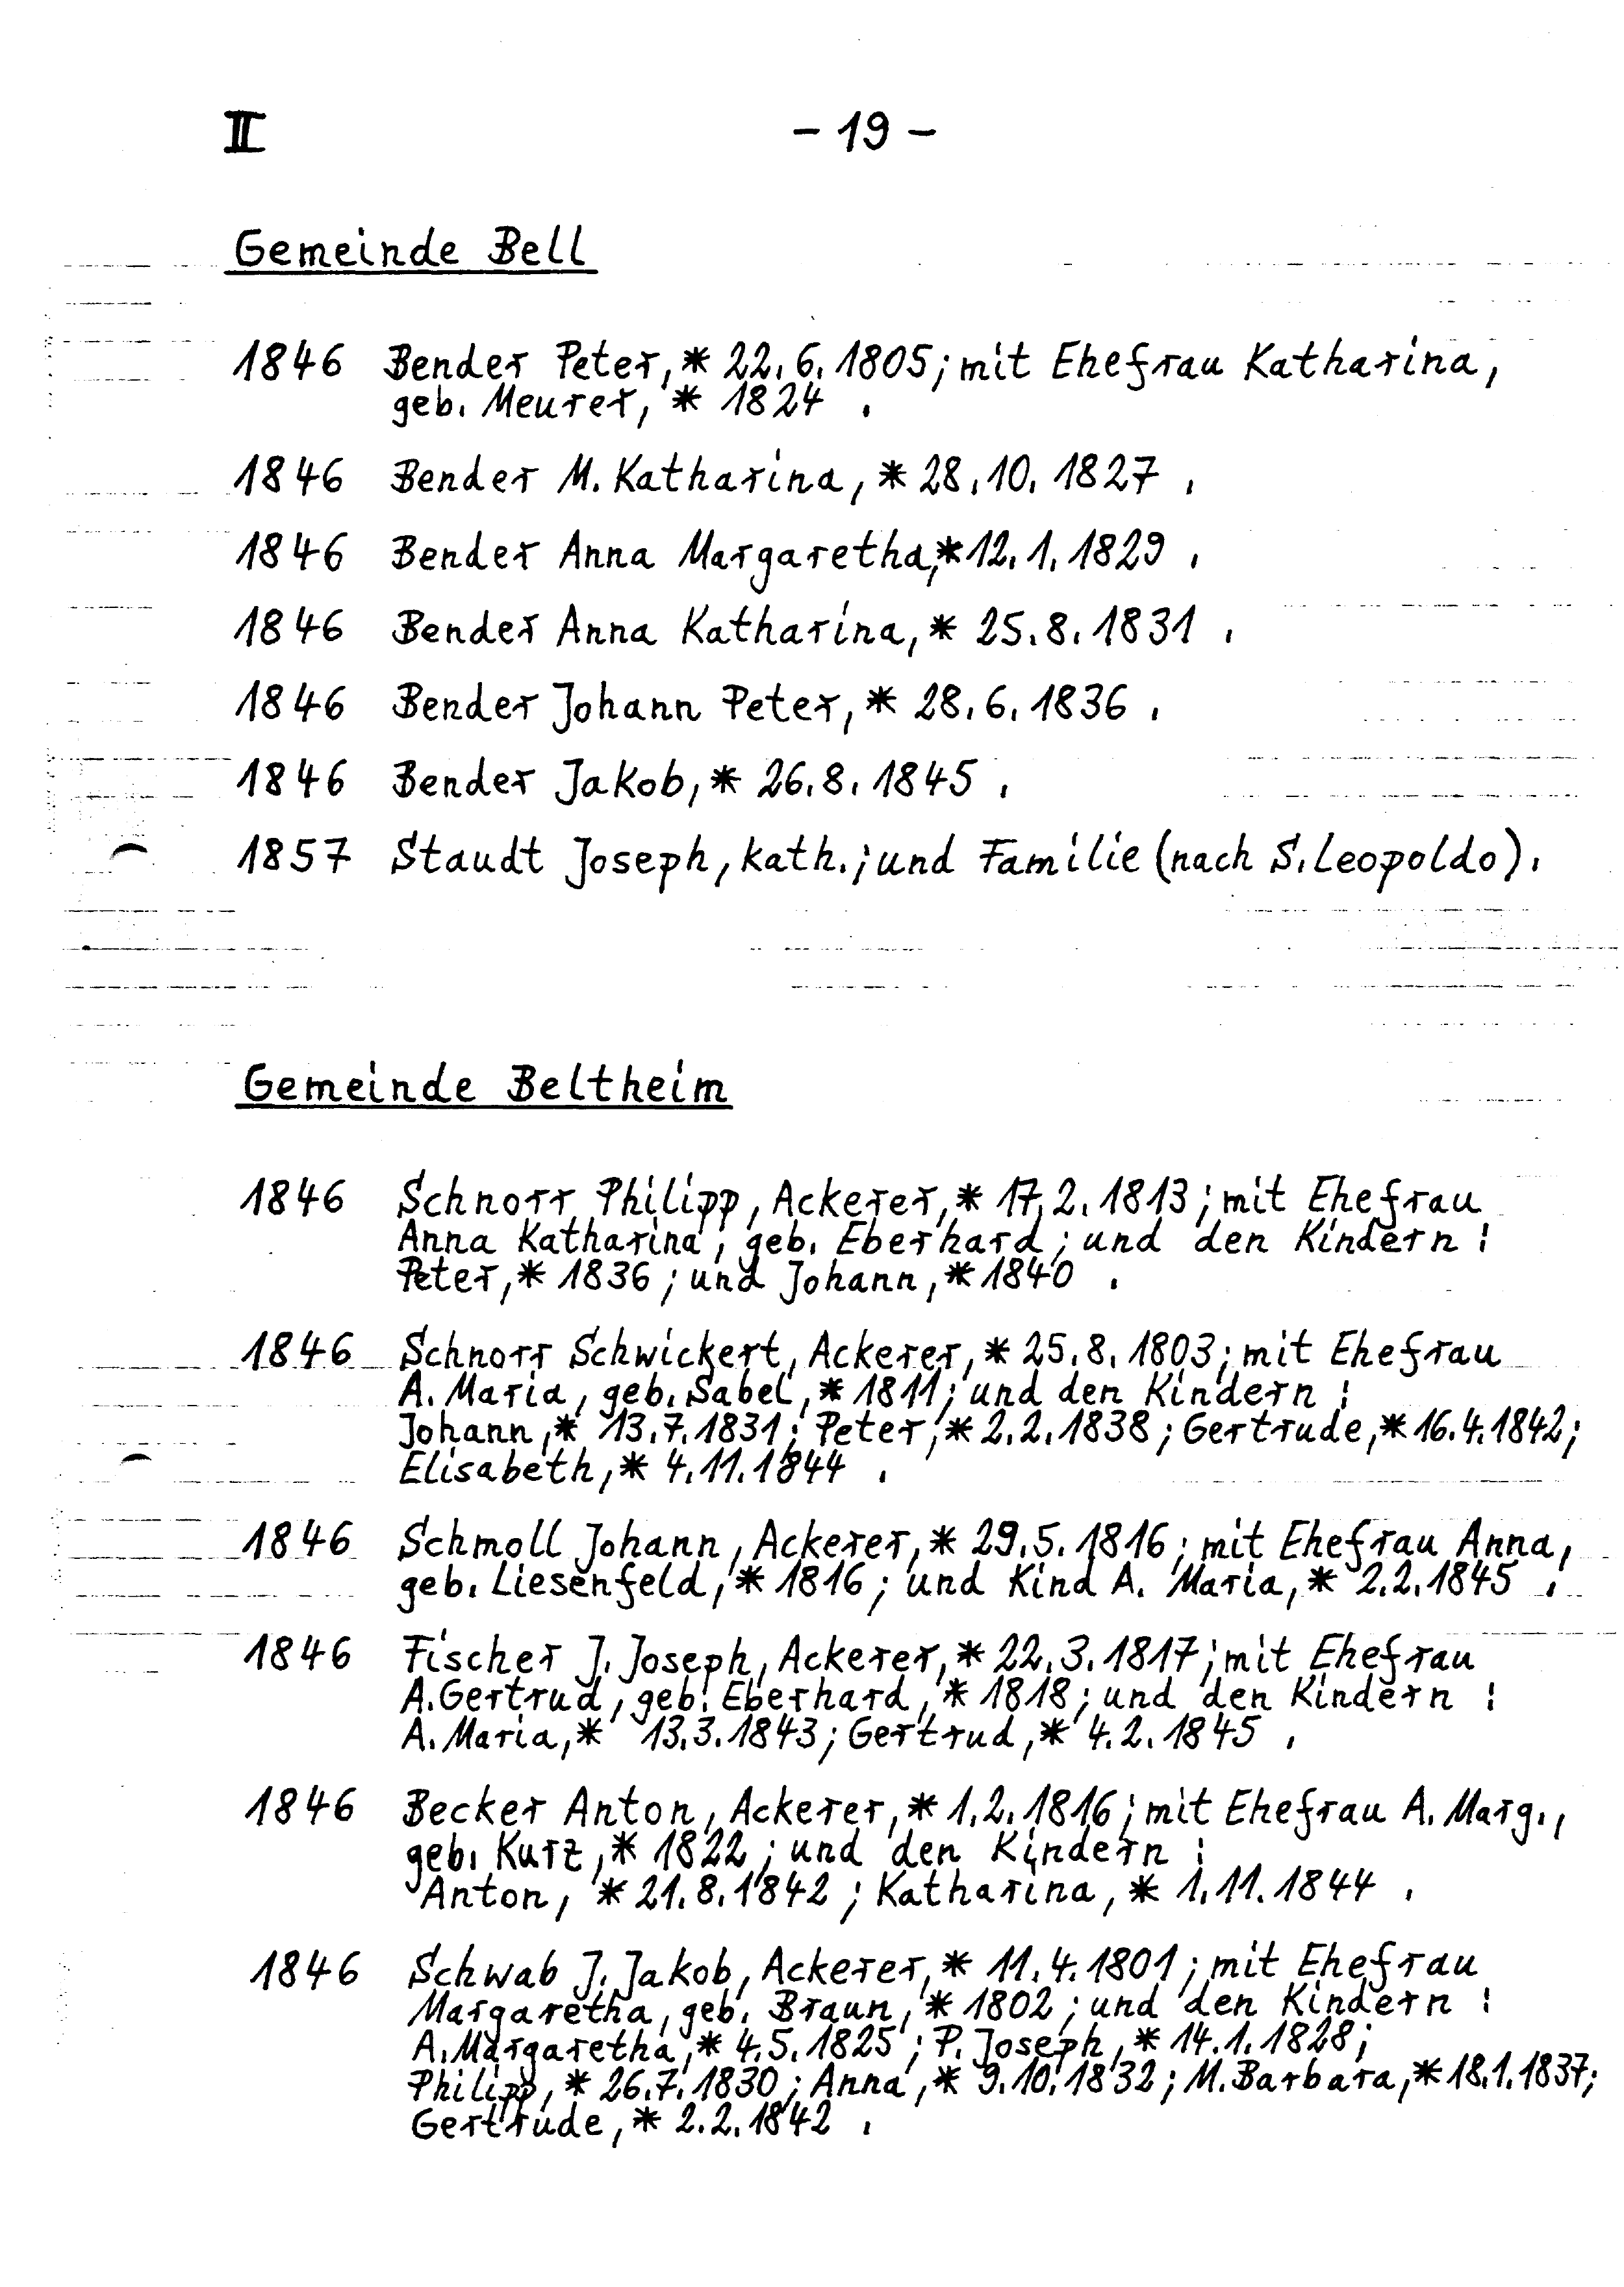 II - 19 -
Gemeinde Bell
1846 Bender Peter, * 22.6.1805; mit Ehefrau Katharina,
geb. Meurer, * 1824 .
1846 Bender M. Katharina, * 28.10.1827 .
1846 Bender Anna Margaretha, * 12.1.1829 .
1846 Bender Anna Katharina, * 25.8.1831 .
1846 Bender Johann Peter, * 28.6.1836 .
1846 Bender Jakob, * 26.8.1845 .
1857 Staudt Joseph, kath.; und Familie (nach S. Leopoldo).
Gemeinde Beltheim
1846 Schnorr Philipp, Ackerer, * 17.2.1813; mit Ehefrau
Anna Katharina, geb. Eberhard; und den Kindern:
Peter, * 1836; und Johann, * 1840 .
1846 Schnorr Schwickert, Ackerer, * 25.8.1803; mit Ehefrau
A. Maria, geb. Sabel, * 1811; und den Kindern:
Johann, * 13.7.1831; Peter, * 2.2.1838; Gertrude, * 16.4.1842;
Elisabeth, * 4.11.1844 .
1846 Schmoll Johann, Ackerer, * 29.5.1816; mit Ehefrau Anna,
geb. Liesenfeld, * 1816; und Kind A. Maria, * 2.2.1845 .
1846 Fischer J. Joseph, Ackerer, * 22.3.1817; mit Ehefrau
A. Gertrud, geb. Eberhard, * 1818; und den Kindern:
A. Maria, * 13.3.1843; Gertrud, * 4.2.1845 .
1846 Becker Anton, Ackerer, * 1.2.1816; mit Ehefrau A. Marg.,
geb. Kurz, * 1822; und den Kindern:
Anton, * 21.8.1842; Katharina, * 1.11.1844 .
1846 Schwab J. Jakob, Ackerer, * 11.4.1801; mit Ehefrau
Margaretha, geb. Braun, * 1802; und den Kindern:
A. Margaretha, * 4.5.1825; P. Joseph, * 14.1.1828;
Philipp, * 26.7.1830; Anna, * 9.10.1832; M. Barbara, * 18.1.1837;
Gertrude, * 2.2.1842 .